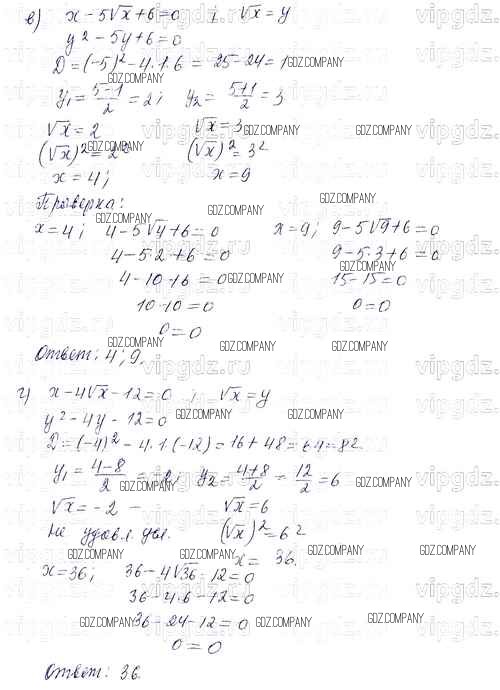 в) x - 5√x + 6 = 0 ; √x = y
y² - 5y + 6 = 0
D = (-5)² - 4·1·6 = 25 - 24 = 1
y₁ = (5-1)/2 = 2; y₂ = (5+1)/2 = 3
√x = 2 √x = 3
(√x)² = 2² (√x)² = 3²
x = 4; x = 9
Проверка:
x = 4; 4 - 5√4 + 6 = 0 x = 9; 9 - 5√9 + 6 = 0
4 - 5·2 + 6 = 0 9 - 5·3 + 6 = 0
4 - 10 + 6 = 0 15 - 15 = 0
10 - 10 = 0 0 = 0
0 = 0
Ответ: 4; 9.
г) x - 4√x - 12 = 0 ; √x = y
y² - 4y - 12 = 0
D = (-4)² - 4·1·(-12) = 16 + 48 = 64 = 8²
y₁ = (4-8)/2 = -2; y₂ = (4+8)/2 = 12/2 = 6
√x = -2 - √x = 6
не удовл. усл. (√x)² = 6²
x = 36.
x = 36; 36 - 4√36 - 12 = 0
36 - 4·6 - 12 = 0
36 - 24 - 12 = 0
0 = 0
Ответ: 36.
GDZ.COMPANY
vipgdz.ru